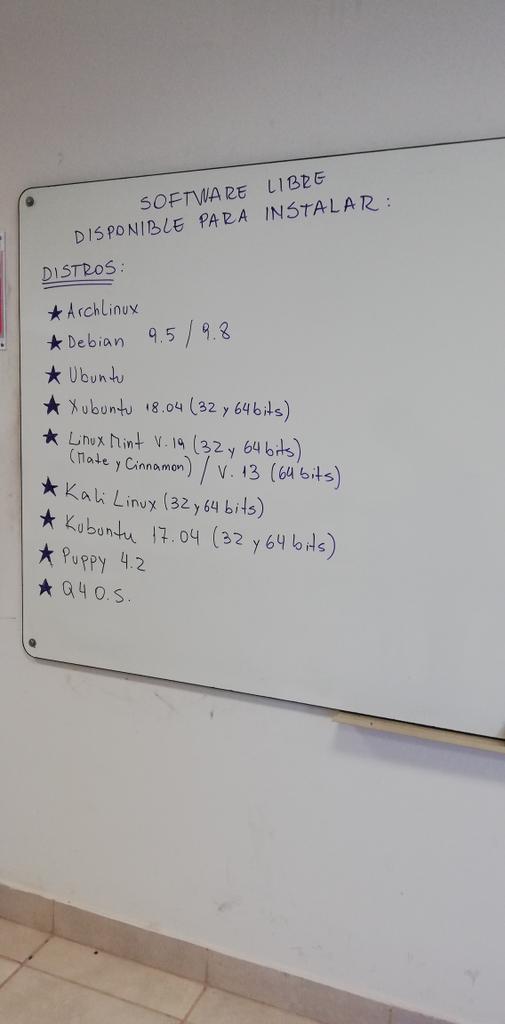 SOFTWARE LIBRE
DISPONIBLE PARA INSTALAR:
DISTROS:
★ ArchLinux
★ Debian 9.5 / 9.8
★ Ubuntu
★ Xubuntu 18.04 (32 y 64 bits)
★ Linux Mint V.19 (32 y 64 bits)
(Mate y Cinnamon) / V. 13 (64 bits)
★ Kali Linux (32 y 64 bits)
★ Kubuntu 17.04 (32 y 64 bits)
★ Puppy 4.2
★ Q4 O.S.